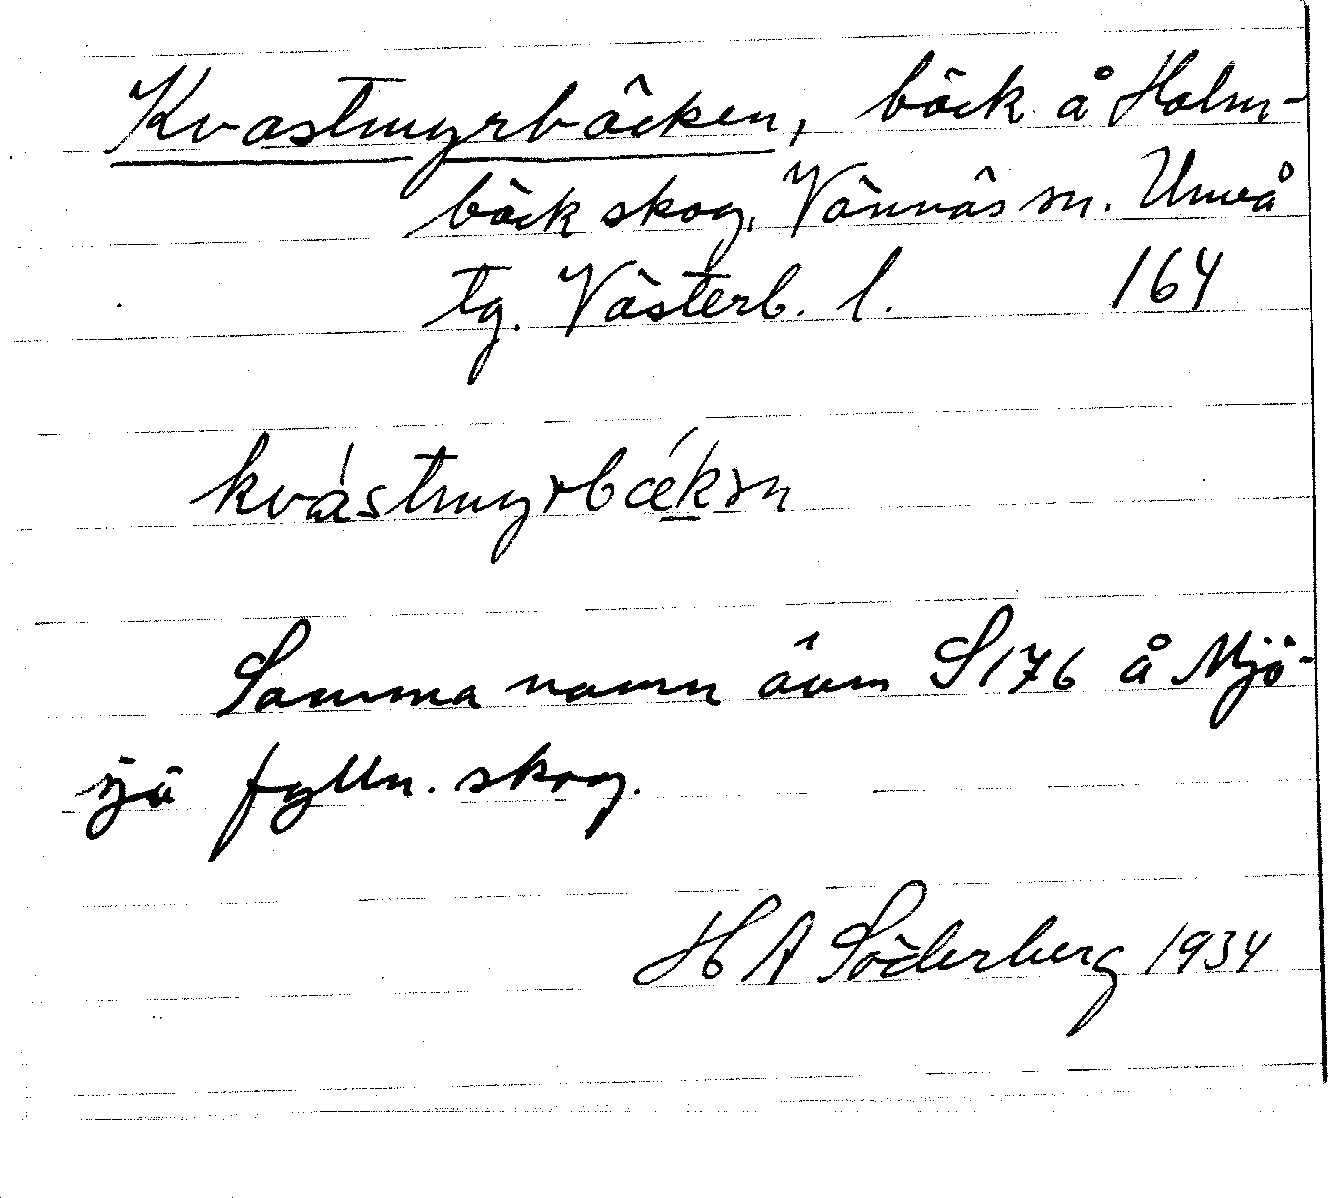 Kvastmyrbäcken, bäck å Holm-
bäck skog, Vännäs sn. Umeå
tg. Västerb. l. 164
kvástmyrbǽkən
Samma namn även S176 å Mjö-
sjö fylln. skog.
H A Söderberg 1934